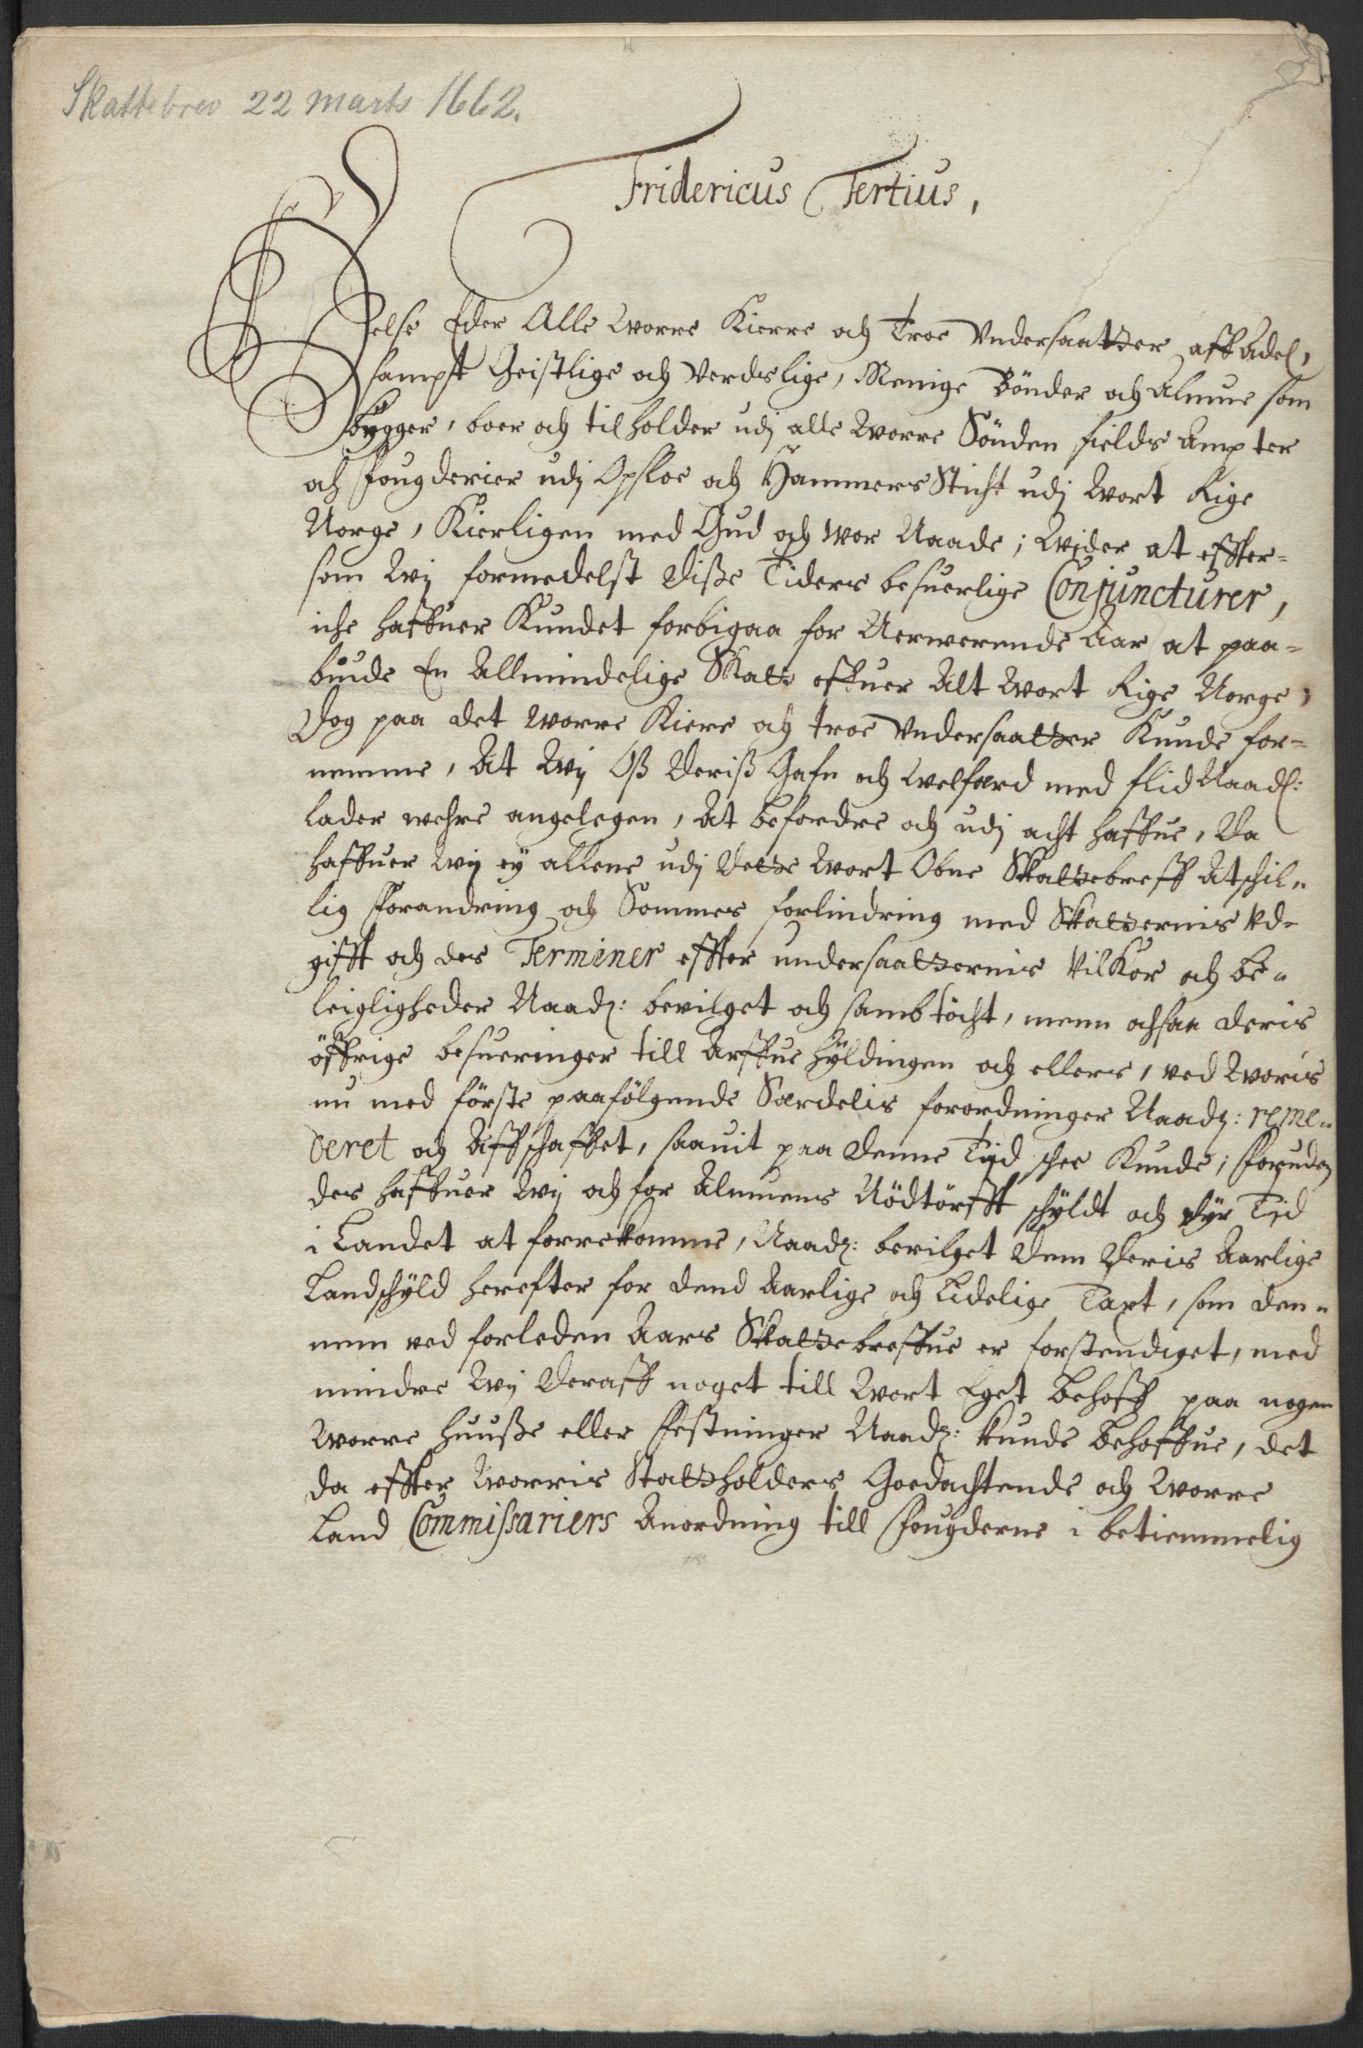 Skattebrev 22 marts 1662.
Fridericus Tertius,
Helse Eder Alle worre Kierre och Troe Undersaatzer aff Adel,
sampt Geistlige och Verdslige, Menige Bönder och Almue som
bygger, boer och tilholder udj alle Worre Sönden fields Ampter
och fougderier udj Opsloe och Hammers Sticht udj Wort Rige
Norge, Kierligen med Gud och wor Naade; Wider at effter-
som Wij formedelst disse Tiders besuerlige Conjuncturer,
iche haffuer Kundet forbigaa for Nerwerende Aar at paa-
biude En Allmindelige Skatz offuer Alt Wort Rige Norge,
Dog paa det worre Kiere och troe Undersaatzer Kunde for-
nemme, At Wij Oß deriß Gafn och Welfærd med flid Naad:
lader wehre angelegen, At befordre och udj acht haffue, Da
haffuer Wij ey allene udj dette Wort Obne Skatzebreff Atschil-
lig Forandring och Sommes forlindring med Skatzernis Ud-
gifft och des Terminer effter undersaatzernis Vilkor och be-
leigligheder Naad: bevilget och sambtöcht, menn ochsaa deris
öffrige besueringer till Arffue Hyldingen och ellers, ved Woris
nu med förste paafölgende Særdelis forordninger Naad: reme-
deret och Affschaffet, saauit paa denne Tiid schee Kunde; Foruden
des haffuer Wij och for Almuens Nödtörfft schyldt och dyr Tid
i Landet at forrekomme, Naad: bevilget dem deris Aarlige
Landschyld herefter for dend Aarlige och Lidelige Taxt, som den-
nem ved forleden Aars Skatzebreffue er forstendiget, med
mindre Wij deraff noget till Wort Eget behoff paa nogen
Worre Huusse eller Festninger Naad: kunde behoffue, det
da effter Worris Statzholders Goedachtende och Worre
Land Commissariers Anordning till Fougderne i betiemmelig